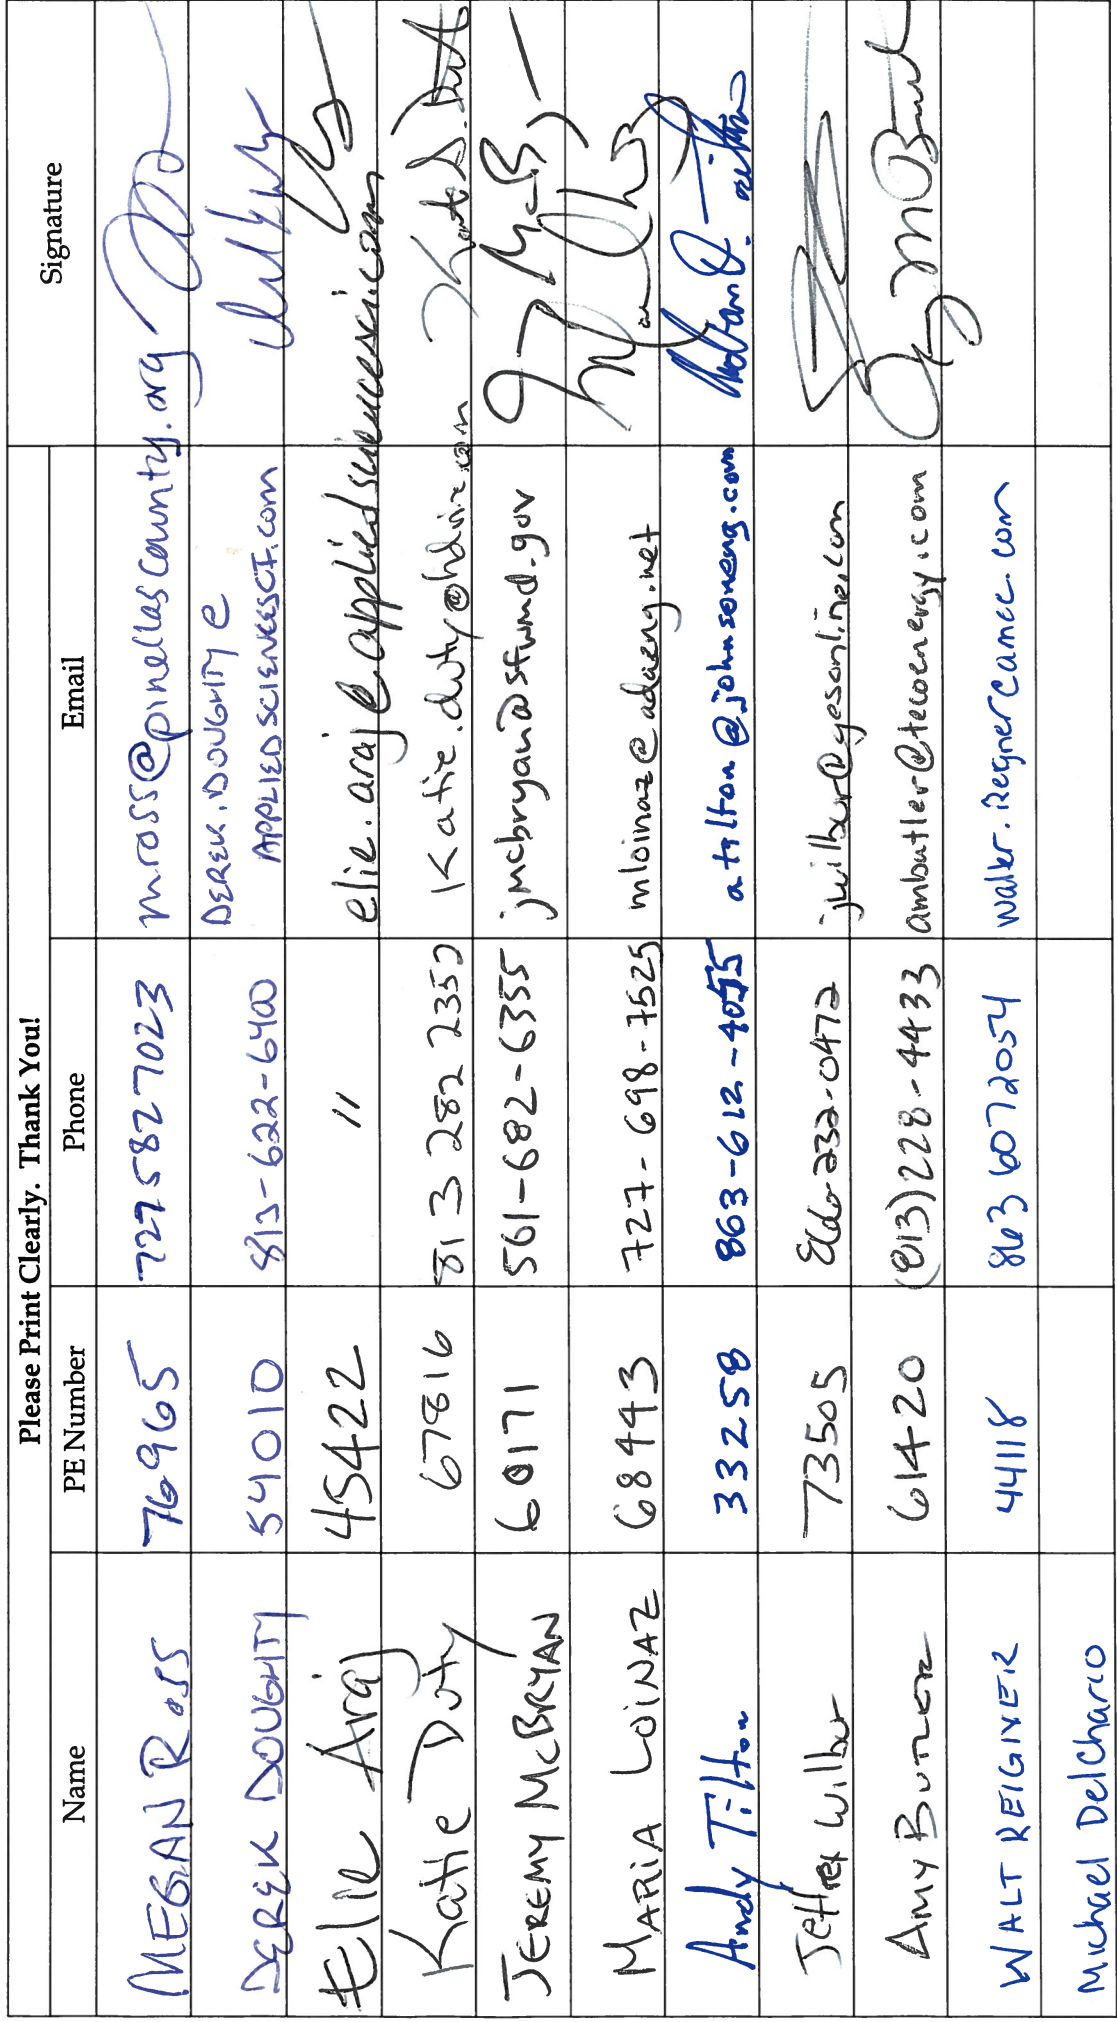 Please Print Clearly. Thank You!
Name PE Number Phone Email Signature
MEGAN Ross 76965 7275827023 mross@pinellascounty.org
DEREK DOUGHTY 54010 813-622-6400 DEREK.DOUGHTY @
APPLIEDSCIENCESCI.com
Elie Araj 45422 " elie.araj@appliedsciencesci.com
Katie Duty 67816 813 282 2352 Katie.duty@hdrinc.com
JEREMY McBRYAN 60171 561-682-6355 jmcbryan@sfwmd.gov
MARIA LOINAZ 68443 727-698-7525 mloinaz@adaeng.net
Andy Tilton 33258 863-612-4055 atilton@johnsoneng.com
Jeffrey Wilbur 73505 232-0472 jwilbur@gesonline.com
AMY BUTLER 61420 (813)228-4433 ambutler@tecoenergy.com
WALT REIGNER 44118 863 607 2054
Michael DelCharco